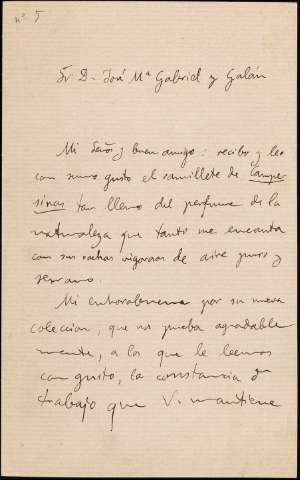 nº 5
Sr. D. José Mª Gabriel y Galán
Mi Señor y buen amigo: recibo y leo
con sumo gusto el ramillete de Campe
sinas tan lleno del perfume de la
naturaleza que tanto me encanta
con sus rachas vigorosas de aire puro y
serrano.
Mi enhorabuena por su nueva
coleccion, que nos prueba agradable
mente, a los que le leemos
con gusto, la constancia en
trabajo que V. mantiene